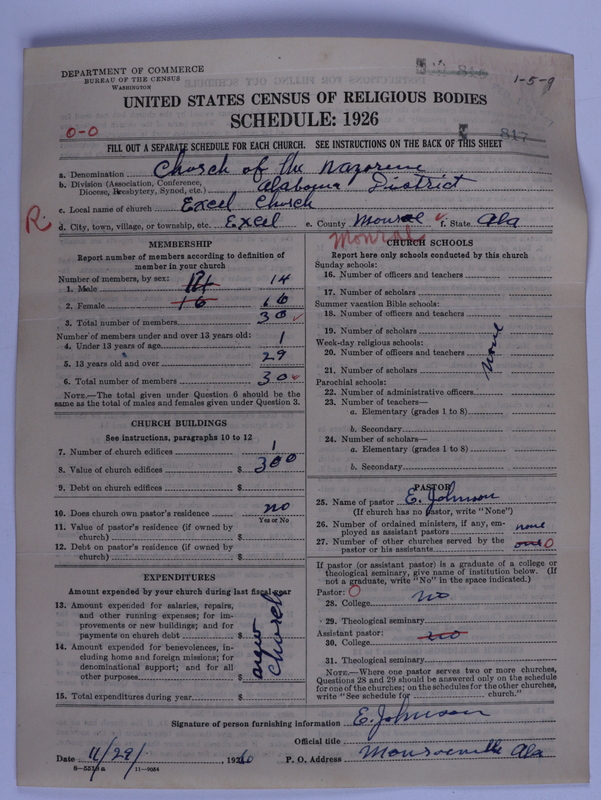 DEPARTMENT OF COMMERCE
BUREAU OF THE CENSUS
WASHINGTON
1-5-9
UNITED STATES CENSUS OF RELIGIOUS BODIES
SCHEDULE: 1926
0-0
817
FILL OUT A SEPARATE SCHEDULE FOR EACH CHURCH. SEE INSTRUCTIONS ON THE BACK OF THIS SHEET
a. Denomination Church of the Nazarene
b. Division (Association, Conference, Diocese, Presbytery, Synod, etc.) Alabama District
c. Local name of church Excel Church
R. d. City, town, village, or township, etc. Excel e. County Monroe f. State Ala
Monroe
MEMBERSHIP
Report number of members according to definition of
member in your church
Number of members, by sex:
1. Male 14 14
2. Female 16 16
3. Total number of members 30
Number of members under and over 13 years old:
4. Under 13 years of age 1
5. 13 years old and over 29
6. Total number of members 30
NOTE.—The total given under Question 6 should be
same as the total of males and females given under Question 3.
CHURCH BUILDINGS
See instructions, paragraphs 10 to 12
7. Number of church edifices 1
8. Value of church edifices $ 300
9. Debt on church edifices $
10. Does church own pastor's residence no
Yes or No
11. Value of pastor's residence (if owned by
church) $
12. Debt on pastor's residence (if owned by
church) $
EXPENDITURES
Amount expended by your church during last fiscal year
13. Amount expended for salaries, repairs,
and other running expenses; for im-
provements or new buildings; and for
payments on church debt $
14. Amount expended for benevolences, in-
cluding home and foreign missions; for
denominational support; and for all
other purposes $
church
15. Total expenditures during year $
CHURCH SCHOOLS
Report here only schools conducted by this church
Sunday schools:
16. Number of officers and teachers
17. Number of scholars
Summer vacation Bible schools:
18. Number of officers and teachers
19. Number of scholars
none
Week-day religious schools:
20. Number of officers and teachers
21. Number of scholars
Parochial schools:
22. Number of administrative officers
23. Number of teachers—
a. Elementary (grades 1 to 8)
b. Secondary
24. Number of scholars—
a. Elementary (grades 1 to 8)
b. Secondary
PASTOR
25. Name of pastor E. Johnson
(If church has no pastor, write "None")
26. Number of ordained ministers, if any, em-
ployed as assistant pastors none
27. Number of other churches served by the
pastor or his assistants 0
If pastor (or assistant pastor) is a graduate of a college or
theological seminary, give name of institution below. (If
not a graduate, write "No" in the space indicated.)
Pastor: 0
28. College no
29. Theological seminary
Assistant pastor:
30. College no
31. Theological seminary
NOTE.—Where one pastor serves two or more churches,
Questions 28 and 29 should be answered only on the schedule
for one of the churches; on the schedules for the other churches,
write "See schedule for church."
Signature of person furnishing information E. Johnson
Official title
Date 11/29/ , 192 P. O. Address Monroeville Ala
8—5513a 11—9024